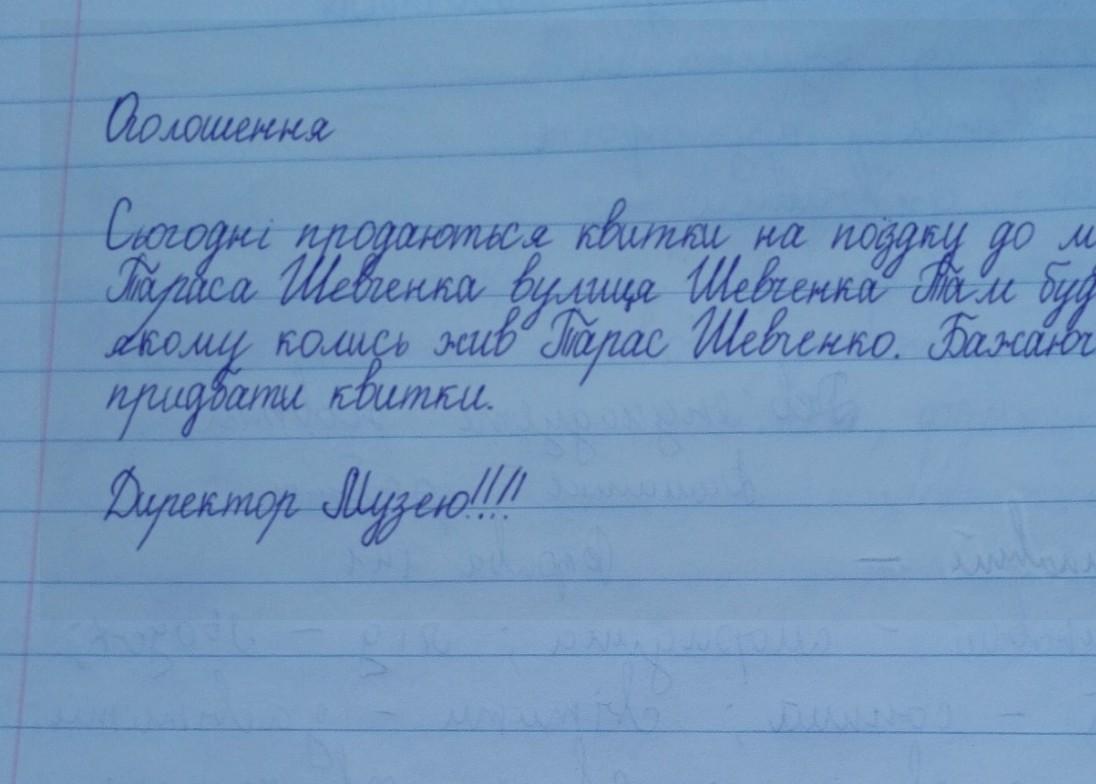 Оголошення
Сьогодні продаються квитки на поїздку до м
Тараса Шевченка вулиця Шевченка Там буд
якому колись жив Тарас Шевченко. Бажаюч
придбати квитки.
Директор Музею!!!!